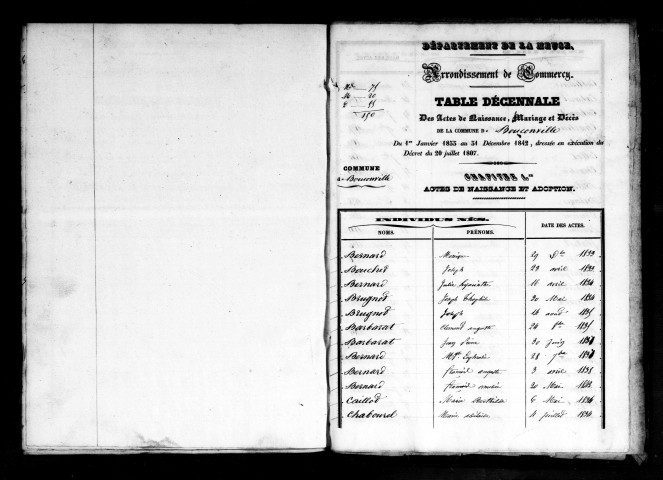 DÉPARTEMENT DE LA MEUSE,
Arrondissement de Commercy.
TABLE DÉCENNALE
Des Actes de Naissance, Mariage et Décès
DE LA COMMUNE De Bouconville
Du 1er Janvier 1833 au 31 Décembre 1842, dressée en exécution du
Décret du 20 juillet 1807.
75
20
55
150
COMMUNE
de Bouconville
CHAPITRE 1.er
ACTES DE NAISSANCE ET ADOPTION.
INDIVIDUS NÉS.
NOMS. PRÉNOMS. DATE DES ACTES.
Besnard 29 1833
Bouchet Joseph 23 avril 1833
Bernard Julie 11 avril 1834
Brugnot Joseph Théophile 20 Mai 1834
Brugnot Joseph 16 août 1835
Barbarat auguste 24 1835
Barbarat Jean Pierre 20 Juin
Bernard 28 7bre
Bernard François auguste 3 avril 1838
Bernard François 20 Mai
Caillot Marie 6 Mai 1836
Chabourel Marie 4 juillet 1834